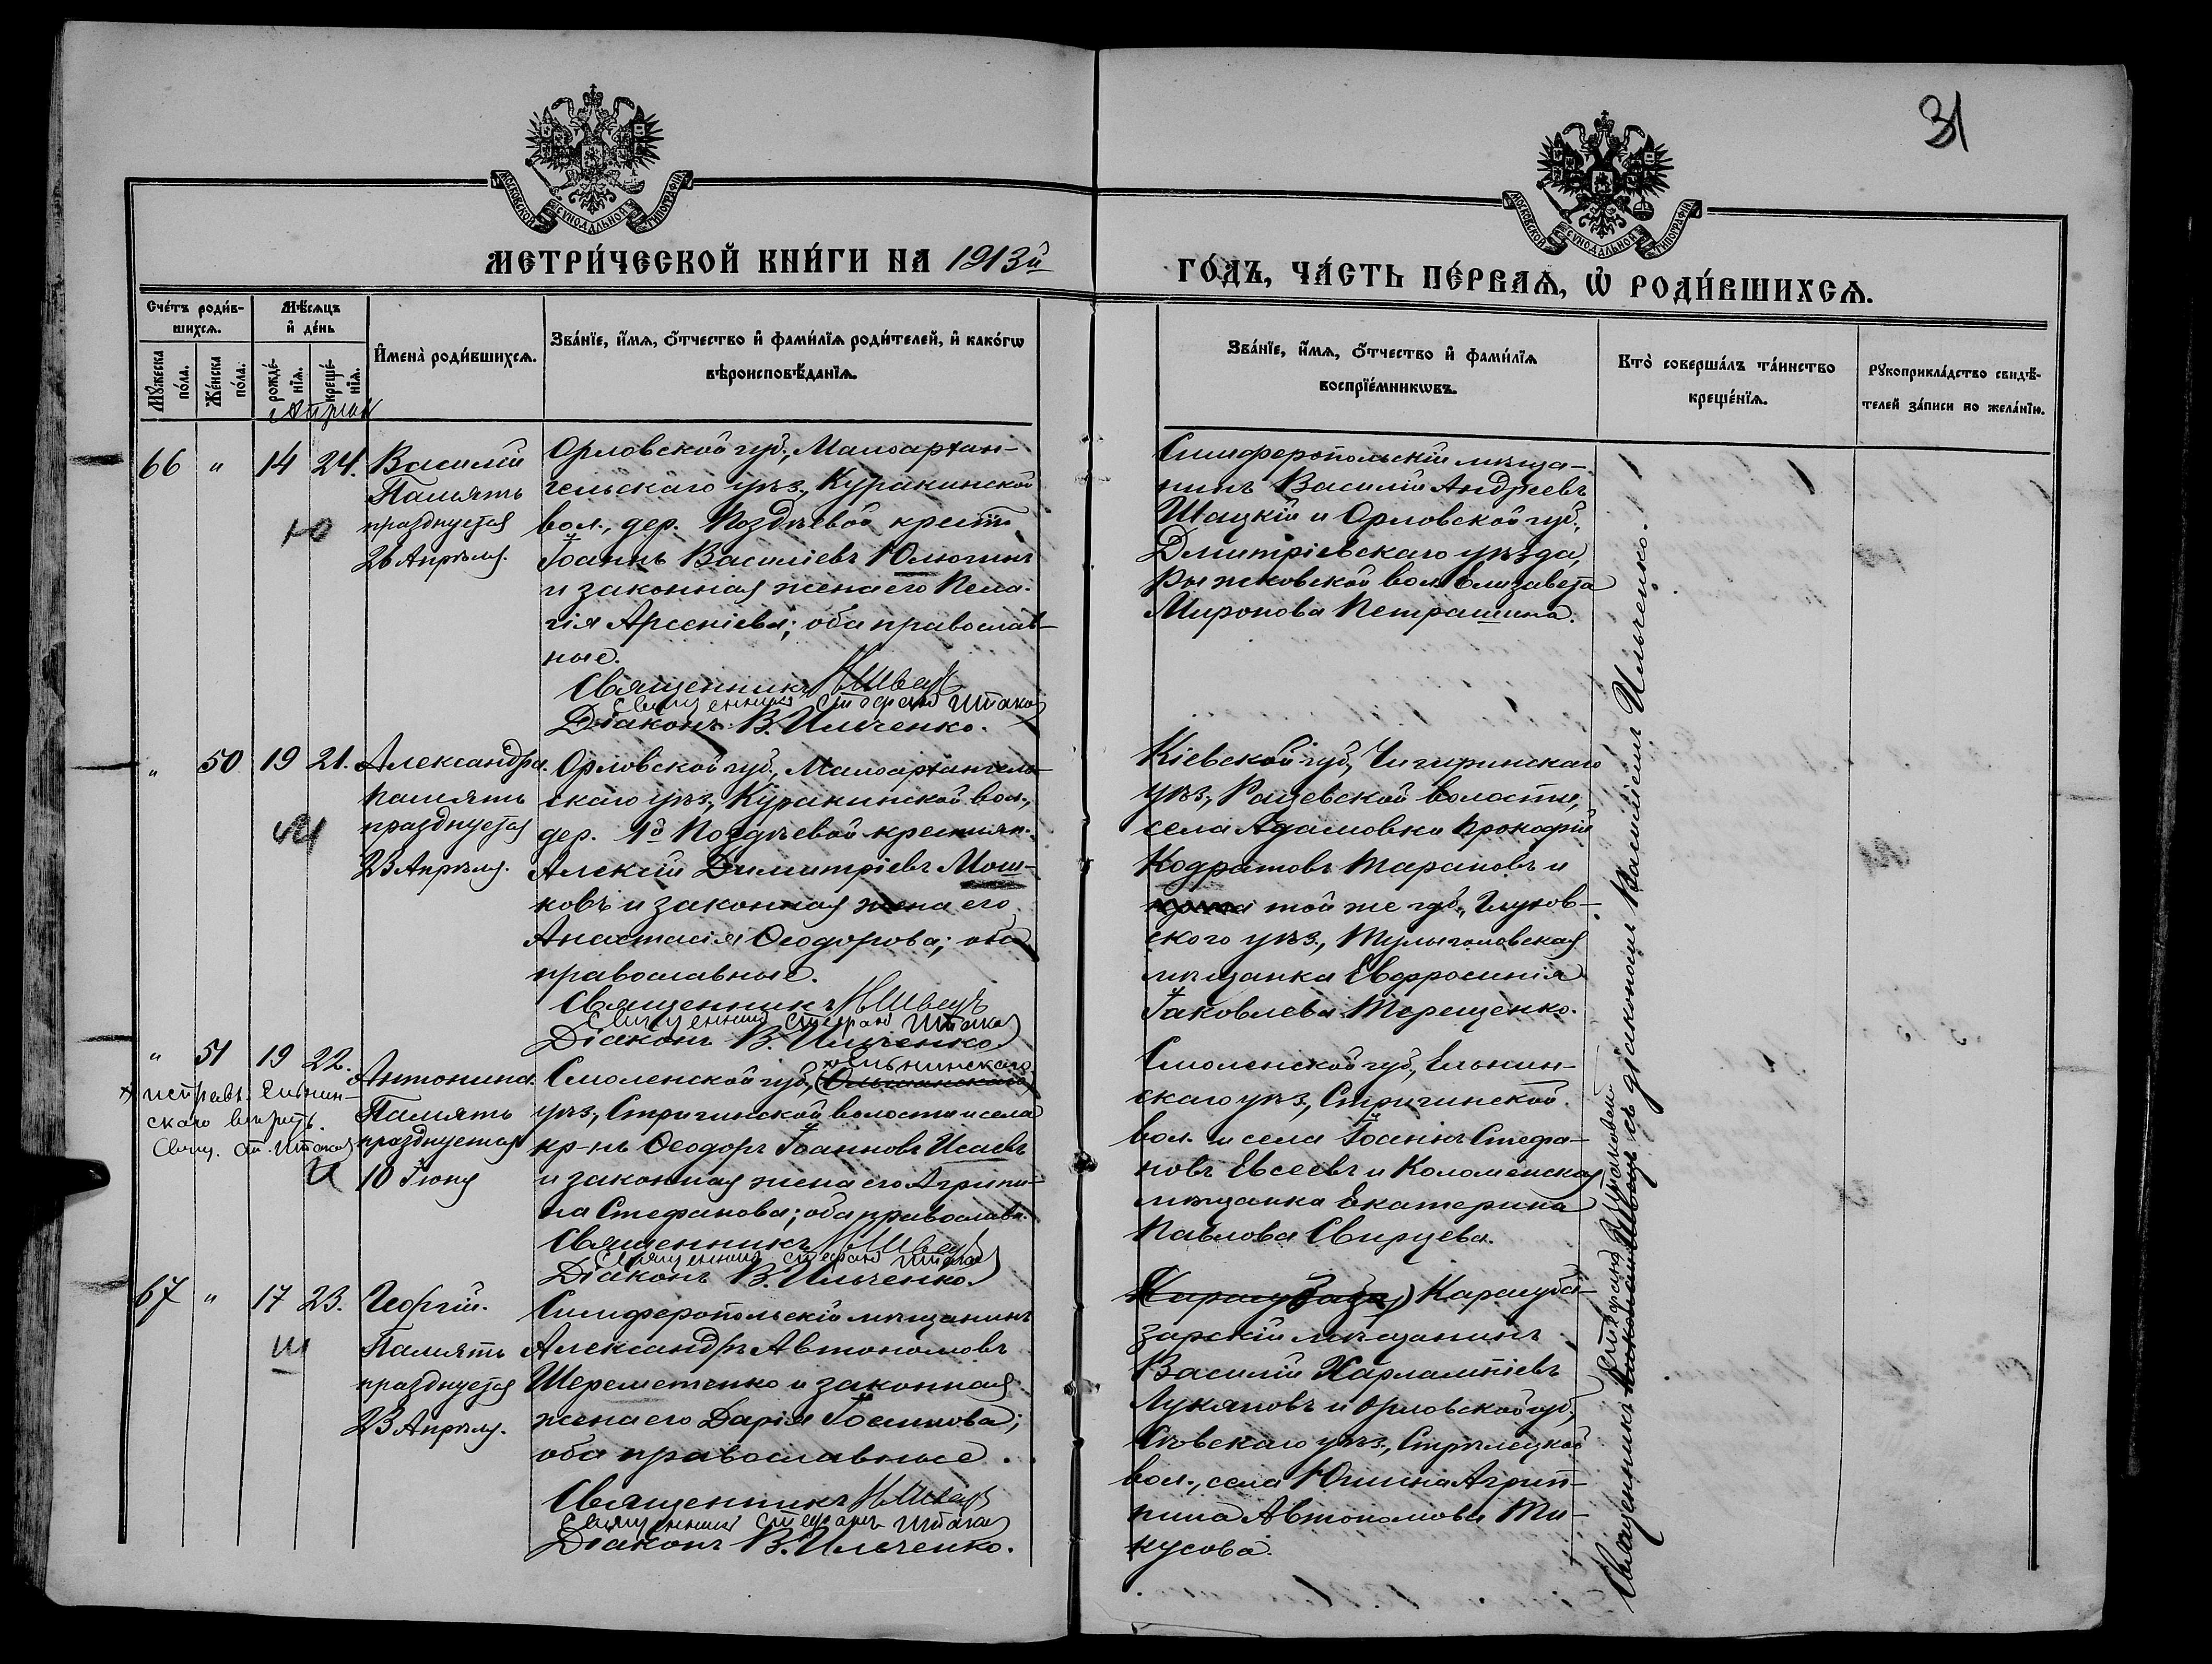 31
МОСКОВСКОЙ СУНОДАЛЬНОЙ ТИПОГРАФІИ
МОСКОВСКОЙ СУНОДАЛЬНОЙ ТИПОГРАФІИ
МЕТРИ́ЧЕСКОЙ КНИ́ГИ НА 1913й
ГО́ДЪ, ЧА́СТЬ ПЕ́РВАѦ, Ѡ РОДИ́ВШИХСѦ.
Сче́тъ роди́в-
шихсѧ.
Мꙋжеска
по́ла.
Же́нска
по́ла.
Мѣ́сѧцъ
и҆ де́нь
рожде́-
нїѧ.
креще́-
нїѧ.
И҆мена̀ роди́вшихсѧ.
Зва́нїе, и҆́мѧ, ѻ҆́тчество и҆ фами́лїѧ роди́телей, и҆ како́гѡ
вѣроисповѣ́данїѧ.
Зва́нїе, и҆́мѧ, ѻ҆́тчество и҆ фами́лїѧ
воспрїе́мникѡвъ.
Кто̀ соверша́лъ та́инство
креще́нїѧ.
Рꙋкоприкла́дство свидѣ́-
телей за́писи по жела́нїю.
Апрѣль
66 " 14 24.
Василій
Память
празднуется
26 Апрѣля.
Ю
Орловской губ., Малоархан-
гельскаго уѣз., Куракинской
вол., дер. Поздѣевой крест.
Іоаннъ Василіевъ Юлюгинъ
и законная жена его Пела-
гія Арсеніева; оба православ-
ные.
Священникъ Н Швецъ
Священникъ Стефанъ Штака
Діаконъ В. Ильченко.
Симферопольскій мѣща-
нинъ Василій Андреевъ
Шацкій и Орловской губ.,
Дмитріевскаго уѣзда,
Рыжковской вол. Елизавета
Миронова Петрашина.
" 50 19 21.
Александра.
Память
празднуется
23 Апрѣля.
М
Орловской губ., Малоархангель-
скаго уѣз., Куракинской вол.,
дер. 1й Поздѣевой крестьян.
Алексій Димитріевъ Мош-
ковъ и законная жена его
Анастасія Ѳеодорова; оба
православные.
Священникъ Н Швецъ
Священникъ Стефанъ Штака
Діаконъ В. Ильченко
Кіевской губ., Чигиринскаго
уѣз., Рацевской волости,
села Адамовки Прокофій
Кодратовъ Тарановъ и
той же губ., Глухов-
ского уѣз., Тулиголовская
мѣщанка Евфросинія
Іаковлева Терещенко.
" 51 19 22.
× исправл. Ельнин-
скаго вѣрить.
Свящ. Ст. Штака
И
Антонина.
Память
празднуется
10 Іюня
× Ельнинскаго
Смоленской губ., (Ольшанскаго)
уѣз., Стригинской волости и села
кр-нъ Ѳеодоръ Іоанновъ Исаевъ
и законная жена его Агрипи-
на Стефанова; оба православн.
Священникъ Н Швецъ
Священникъ Стефанъ Штака
Діаконъ В. Ильченко.
Смоленской губ., Ельнин-
скаго уѣз., Стригинской
вол. и села Іоаннъ Стефа-
новъ Евсеевъ и Коломенская
мѣщанка Екатерина
Павлова Свирцева.
67 " 17 23.
Георгій.
Память
празднуется
23 Апрѣля.
Ш
Симферопольскій мѣщанинъ
Александръ Автономовъ
Шереметенко и законная
жена его Дарія Іоаннова;
оба православные.
Священникъ Н Швецъ
Священникъ Стефанъ Штака
Діаконъ В. Ильченко.
(Карасубаза) Карасуба-
зарскій мѣщанинъ
Василій Харлампіевъ
Лукяновъ и Орловской губ.,
Сѣвскаго уѣз., Стрѣлецкой
вол., села Юшина Агрип-
пина Автономова Ти-
кусова.
Священникъ Николай Швецъ съ діакономъ Василіемъ Ильченко.